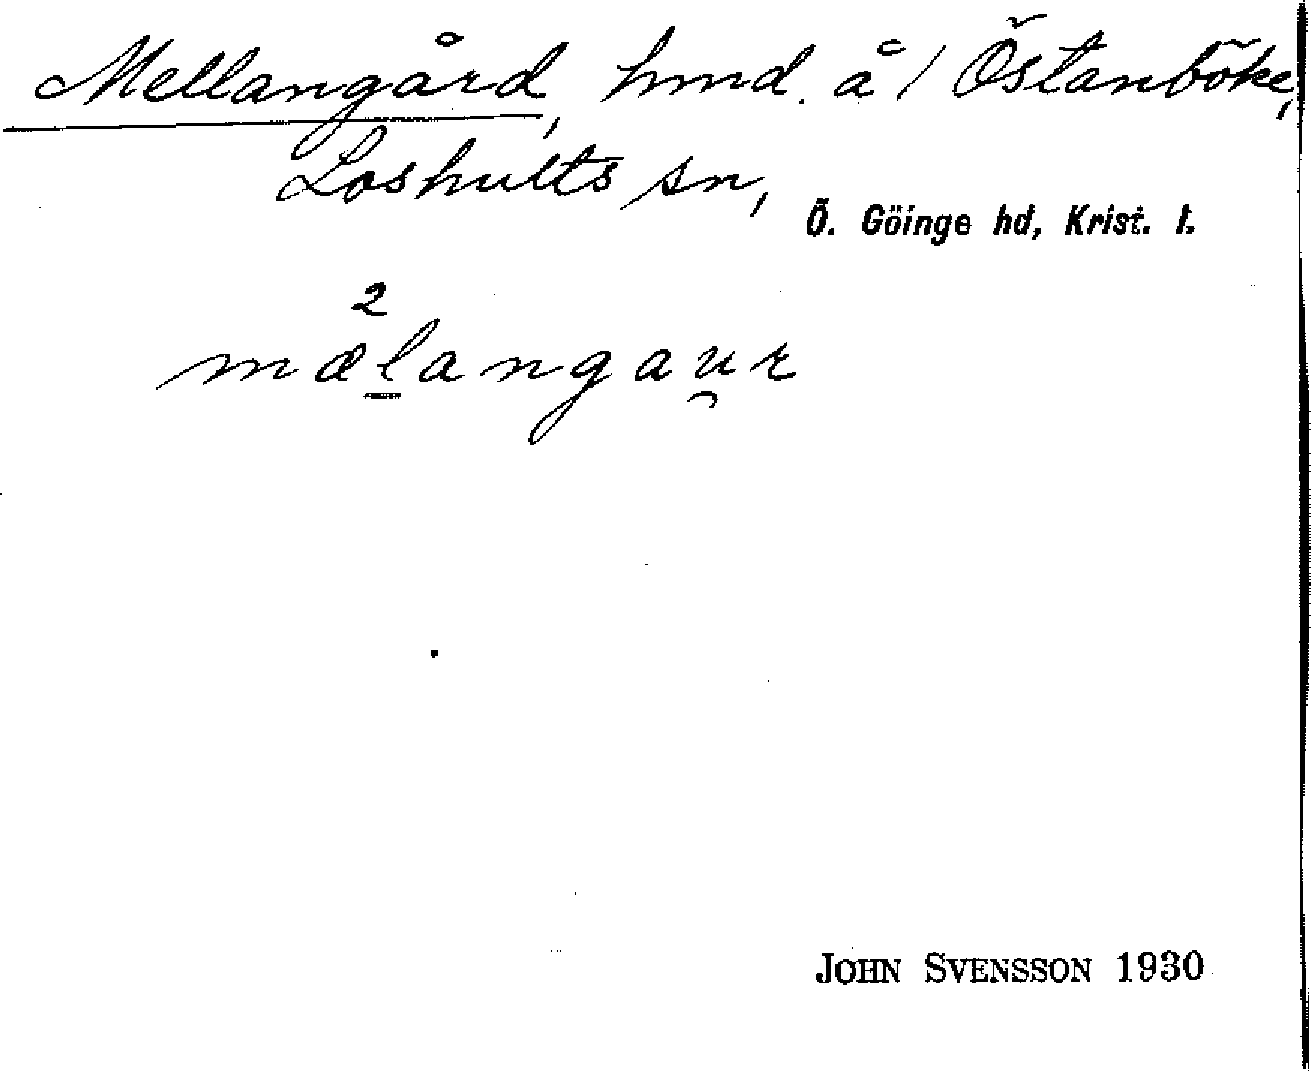 Mellangård, hmd. å / Östanböke,
Loshults sn, Ö. Göinge hd, Krist. l.
2
mælangau̯r
JOHN SVENSSON 1930